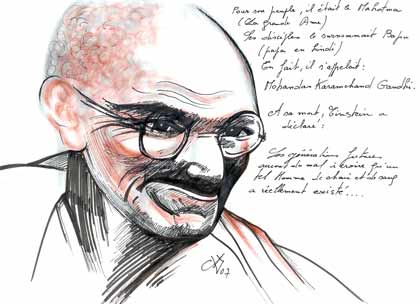 Pour son peuple, il était le Mahatma
(la grande Âme)
Ses disciples le surnommait Bapu
(papa en hindi)
En fait, il s'appelait :
Mohandas Karamchand Gandhi.
A sa mort, Einstein a
déclaré :
Les générations futures
auront du mal à croire qu'un
tel Homme de chair et de sang
a réellement existé....
07